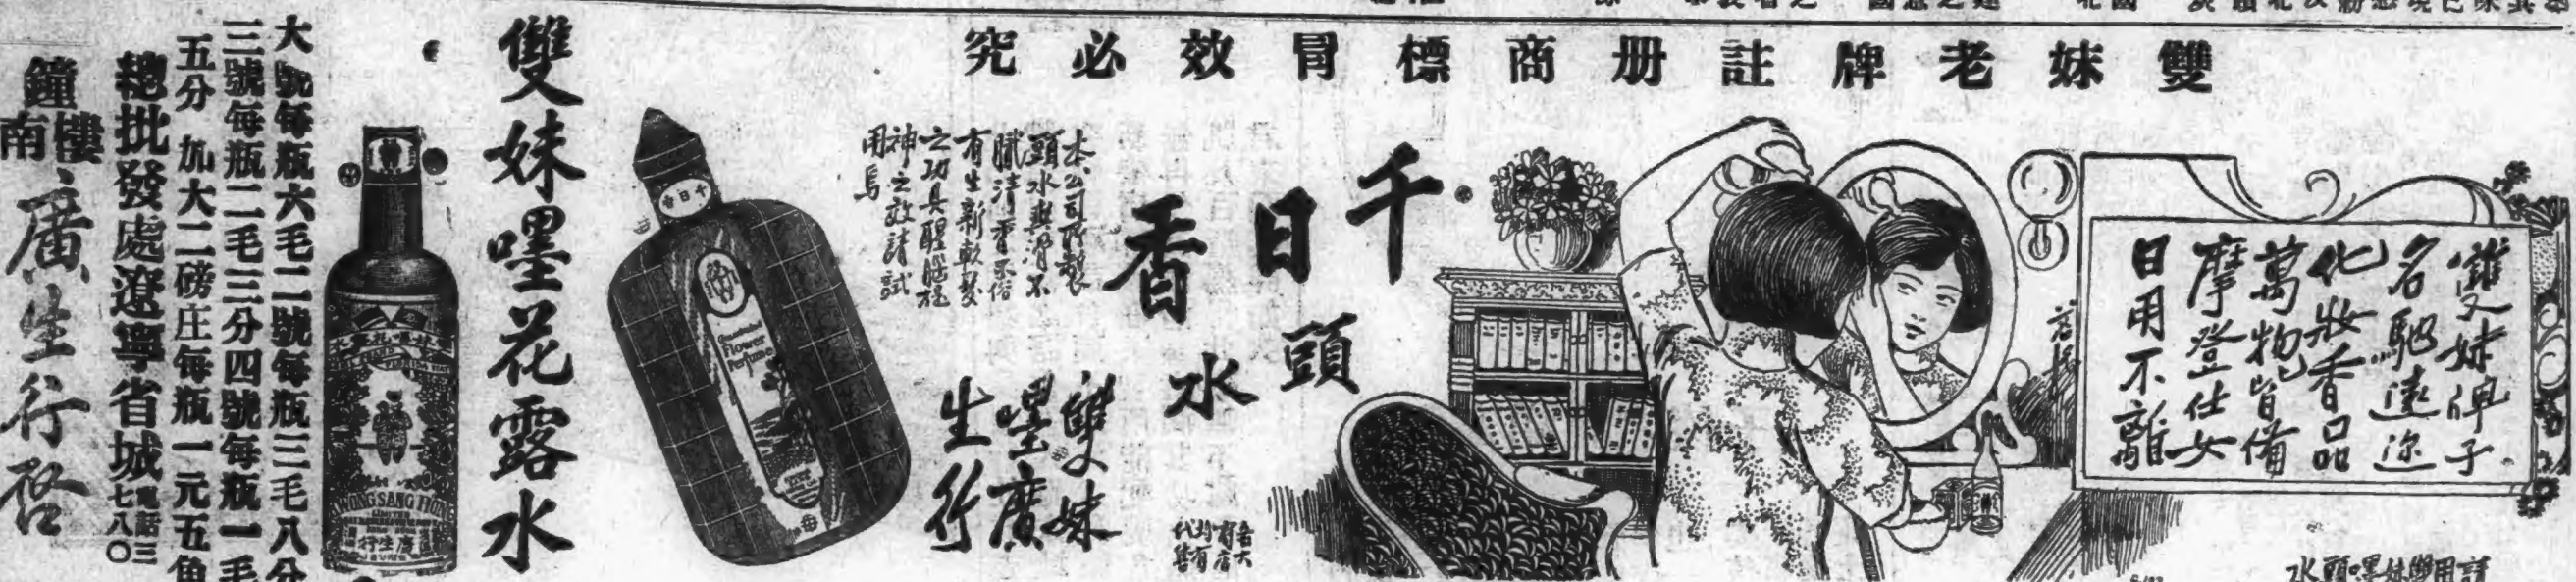 雙妹老牌註册商標冒效必究
雙妹牌子
名馳遠迩
化妝香品
萬物皆備
摩登仕女
日用不離
請用雙妹嚜頭水
千日香
頭水
各大
商店
均有
代售
本公司所製
頭水與滑不
膩清香不俗
有生新軟髮
之功具醒腦提
神之效請試
用焉
雙妹
嚜廣
生行
千日香
Flower
Perfume
雙妹嚜花露水
KWONG SANG HONG
LIMITED
廣生行
大號每瓶六毛二號每瓶三毛八分
三號每瓶二毛三分四號每瓶一毛
五分 加大二磅庄每瓶一元五角
總批發處遼寧省城
電話三
七八〇
鐘樓南
廣生行啓